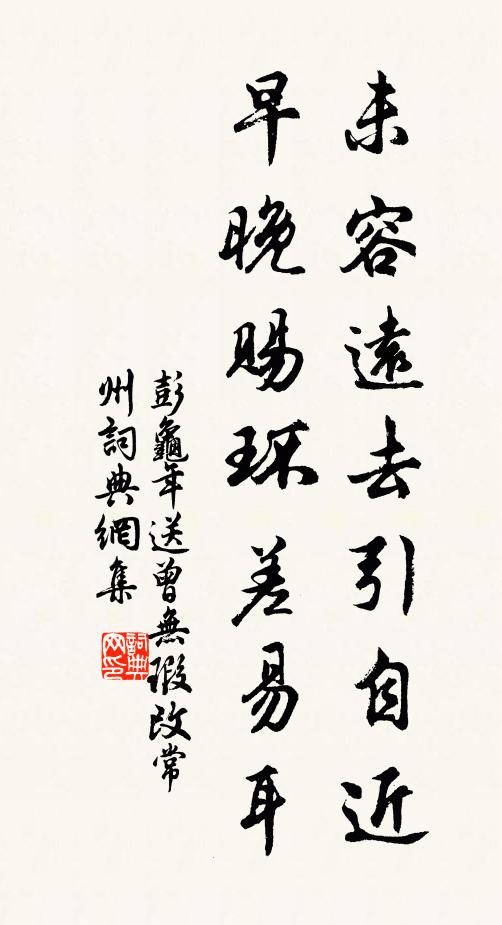 未容遠去引自近
早晚賜环差易耳
彭龜年送曾無瑕改常
州詞典網集
詞典
网